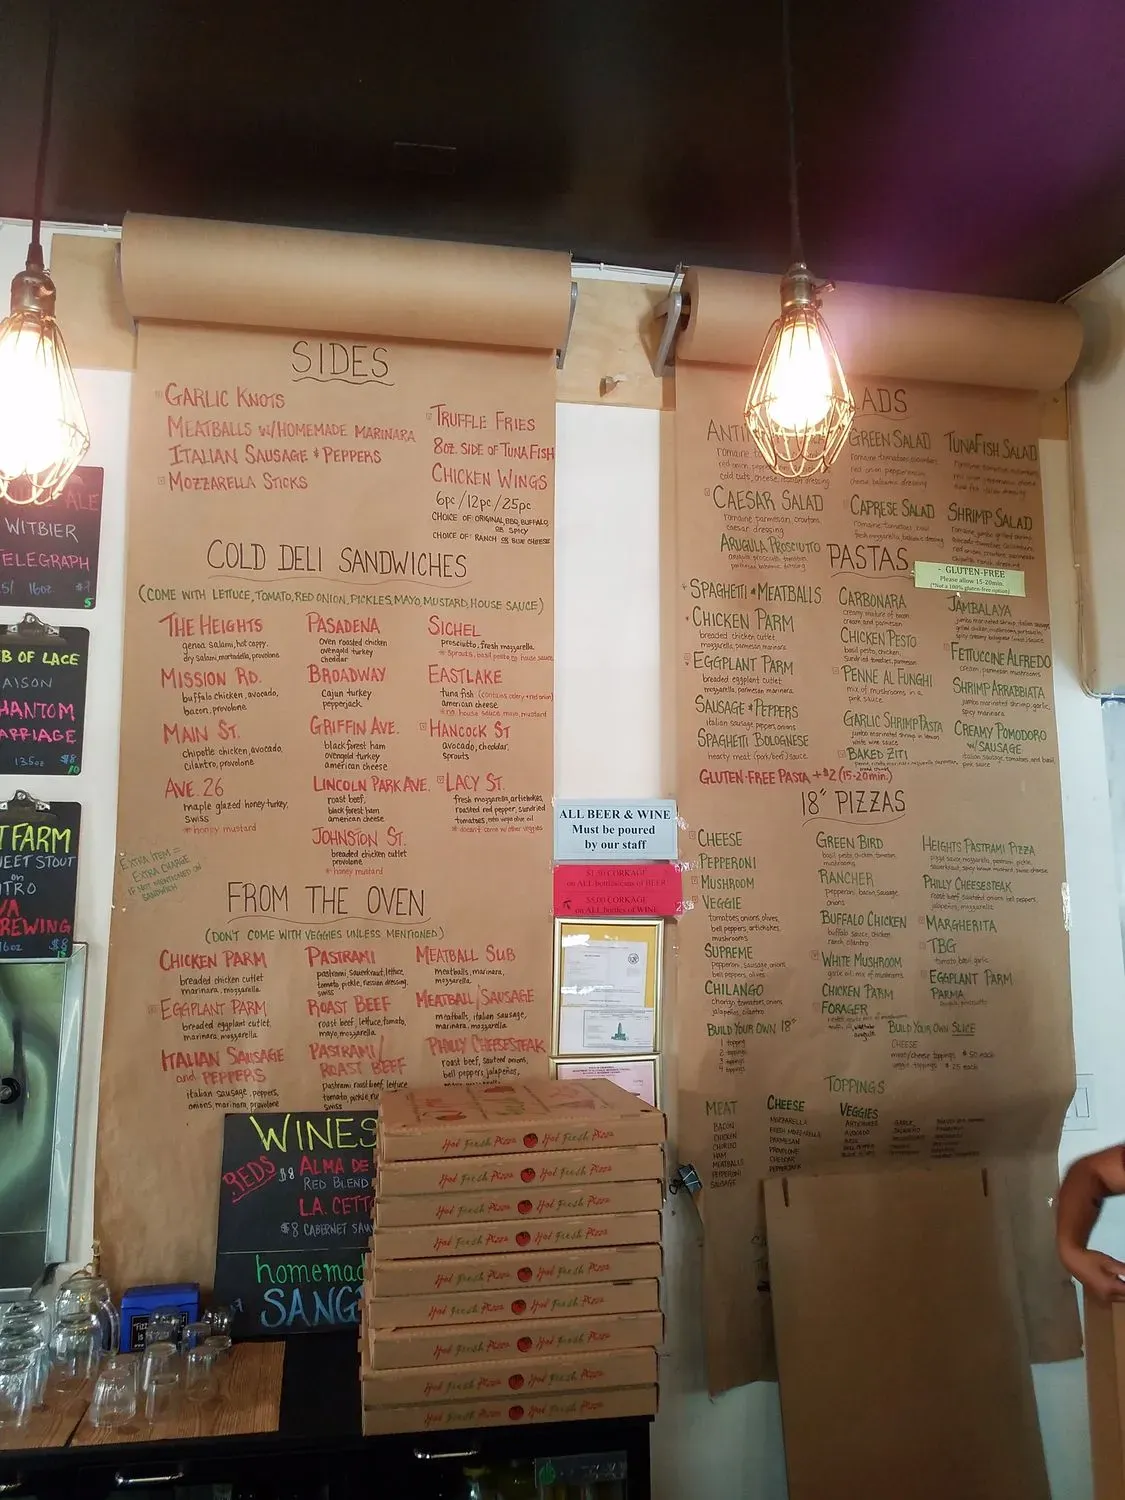 SIDES
GARLIC KNOTS
MEATBALLS W/HOMEMADE MARINARA
ITALIAN SAUSAGE & PEPPERS
MOZZARELLA STICKS
TRUFFLE FRIES
8OZ. SIDE OF TUNA FISH
CHICKEN WINGS
6pc/12pc/25pc
CHOICE OF: ORIGINAL, BBQ, BUFFALO,
OR SPICY
CHOICE OF: RANCH OR BLUE CHEESE
COLD DELI SANDWICHES
(COME WITH LETTUCE, TOMATO, RED ONION, PICKLES, MAYO, MUSTARD, HOUSE SAUCE)
THE HEIGHTS
genoa salami, hot cappy,
dry salami, mortadella, provolone
MISSION RD.
buffalo chicken, avocado,
bacon, provolone
MAIN ST.
chipotle chicken, avocado,
cilantro, provolone
AVE. 26
maple glazed honey turkey,
swiss
* honey mustard
PASADENA
oven roasted chicken
ovengold turkey
cheddar
BROADWAY
Cajun turkey
pepperjack
GRIFFIN AVE.
black forest ham
ovengold turkey
american cheese
LINCOLN PARK AVE.
roast beef,
black forest ham
american cheese
JOHNSTON ST.
breaded chicken cutlet
provolone
* honey mustard
SICHEL
prosciutto, fresh mozzarella,
* sprouts, basil pesto no house sauce
EASTLAKE
tuna fish (contains celery + red onion)
american cheese
* no house sauce, mayo, mustard
HANCOCK ST
avocado, cheddar,
sprouts
LACY ST.
fresh mozzarella, artichokes,
roasted red pepper, sundried
tomatoes, extra virgin olive oil
* doesn't come w/ other veggies
EXTRA ITEM =
EXTRA CHARGE
IF NOT MENTIONED ON
SANDWICH
FROM THE OVEN
(DON'T COME WITH VEGGIES UNLESS MENTIONED)
CHICKEN PARM
breaded chicken cutlet
marinara, mozzarella
EGGPLANT PARM
breaded eggplant cutlet,
marinara, mozzarella
ITALIAN SAUSAGE
and PEPPERS
italian sausage, peppers,
onions, marinara, provolone
PASTRAMI
pastrami, sauerkraut, lettuce,
tomato, pickle, russian dressing,
swiss
ROAST BEEF
roast beef, lettuce, tomato,
mayo, mozzarella
PASTRAMI/
ROAST BEEF
pastrami roast beef, lettuce
tomato, pickle, ru
swiss
MEATBALL SUB
meatballs, marinara,
mozzarella
MEATBALL/SAUSAGE
meatballs, italian sausage,
marinara, mozzarella
PHILLY CHEESESTEAK
roast beef, sauteed onions,
bell peppers, jalapeños,
ADS
ANTI
GREEN SALAD
romaine, tomatoes, cucumber,
red onion, pepperoncini,
cheese, balsamic dressing
TUNA FISH SALAD
CAESAR SALAD
romaine, parmesan, croutons,
caesar dressing
CAPRESE SALAD
romaine, tomatoes, basil
fresh mozzarella, balsamic dressing
SHRIMP SALAD
ARUGULA PROSCIUTTO
PASTAS
- GLUTEN-FREE
Please allow 15-20min.
(Not a 100% gluten-free option)
SPAGHETTI & MEATBALLS
CHICKEN PARM
breaded chicken cutlet
mozzarella, parmesan, marinara
EGGPLANT PARM
breaded eggplant cutlet
mozzarella, parmesan, marinara
SAUSAGE & PEPPERS
italian sausage, peppers, onions
SPAGHETTI BOLOGNESE
hearty meat (pork/beef) sauce
CARBONARA
creamy mixture of bacon
cream and parmesan
CHICKEN PESTO
basil pesto, chicken,
sundried tomatoes, parmesan
PENNE AL FUNGHI
mix of mushrooms in a
pink sauce
GARLIC SHRIMP PASTA
white wine sauce
BAKED ZITI
JAMBALAYA
FETTUCCINE ALFREDO
cream, parmesan, mushrooms
SHRIMP ARRABBIATA
jumbo marinated shrimp, garlic,
spicy marinara
CREAMY POMODORO
W/ SAUSAGE
italian sausage, tomatoes, and basil,
pink sauce
GLUTEN-FREE PASTA +$2 (15-20min.)
18" PIZZAS
CHEESE
PEPPERONI
MUSHROOM
VEGGIE
tomatoes, onions, olives,
bell peppers, artichokes,
mushrooms
SUPREME
pepperoni, sausage, onions
bell peppers, olives
CHILANGO
chorizo, tomatoes, onions
jalapeños, cilantro
BUILD YOUR OWN 18"
1 topping
2 toppings
3 toppings
4 toppings
GREEN BIRD
basil pesto, chicken, tomatoes,
mushrooms
RANCHER
pepperoni, bacon, sausage,
onions
BUFFALO CHICKEN
buffalo sauce, chicken,
ranch, cilantro
WHITE MUSHROOM
garlic oil, mix of mushrooms
CHICKEN PARM
FORAGER
HEIGHTS PASTRAMI PIZZA
PHILLY CHEESESTEAK
roast beef, sauteed onions, bell peppers,
jalapeños, mozzarella
MARGHERITA
TBG
tomato, basil, garlic
EGGPLANT PARM
PARMA
BUILD YOUR OWN SLICE
CHEESE
meat/cheese toppings $.50 each
veggie toppings $.25 each
TOPPINGS
MEAT
BACON
CHICKEN
CHORIZO
HAM
MEATBALLS
PEPPERONI
SAUSAGE
CHEESE
MOZZARELLA
FRESH MOZZARELLA
PARMESAN
PROVOLONE
CHEDDAR
PEPPERJACK
VEGGIES
ARTICHOKES
AVOCADO
BASIL
GARLIC
JALAPEÑO
ALL BEER & WINE
Must be poured
by our staff
$1.50 CORKAGE
on ALL bottles/cans of BEER
$5.00 CORKAGE
on ALL bottles of WINE
ALE
WITBIER
TELEGRAPH
16oz
B OF LACE
AISON
HANTOM
ARRIAGE
13.5oz $8
T FARM
EET STOUT
on
ITRO
VA
REWING
16oz $8
WINES
REDS
$8 ALMA DE
RED BLEND
L.A. CETT
$8 CABERNET SAU
homemad
SANG
Hot Fresh Pizza Hot Fresh Pizza
Hot Fresh Pizza Hot Fresh Pizza
Hot Fresh Pizza Hot Fresh Pizza
Hot Fresh Pizza Hot Fresh Pizza
Hot Fresh Pizza Hot Fresh Pizza
Hot Fresh Pizza Hot Fresh Pizza
Hot Fresh Pizza Hot Fresh Pizza
Hot Fresh Pizza Hot Fresh Pizza
Hot Fresh Pizza Hot Fresh Pizza